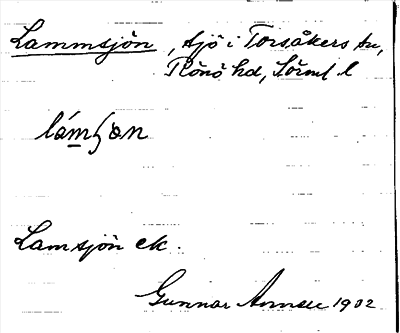 Lammsjön, sjö i Torsåkers sn,
Rönö hd, Sörml. l
lámʃɔn
Lamsjön ek.
Gunnar 1902